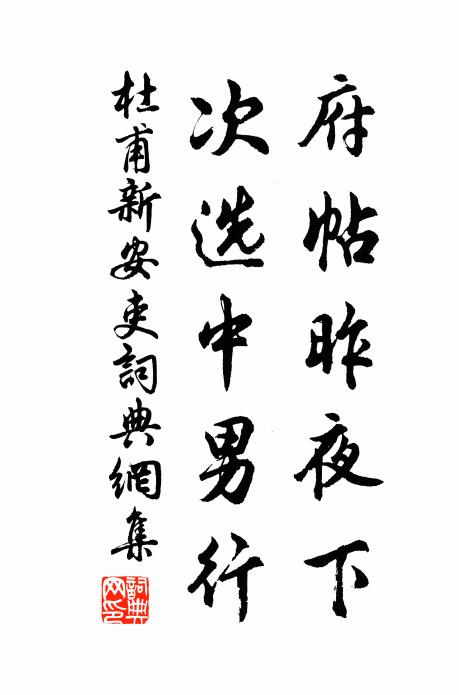 府帖昨夜下
次选中男行
杜甫新安吏詞典網集
詞典網印